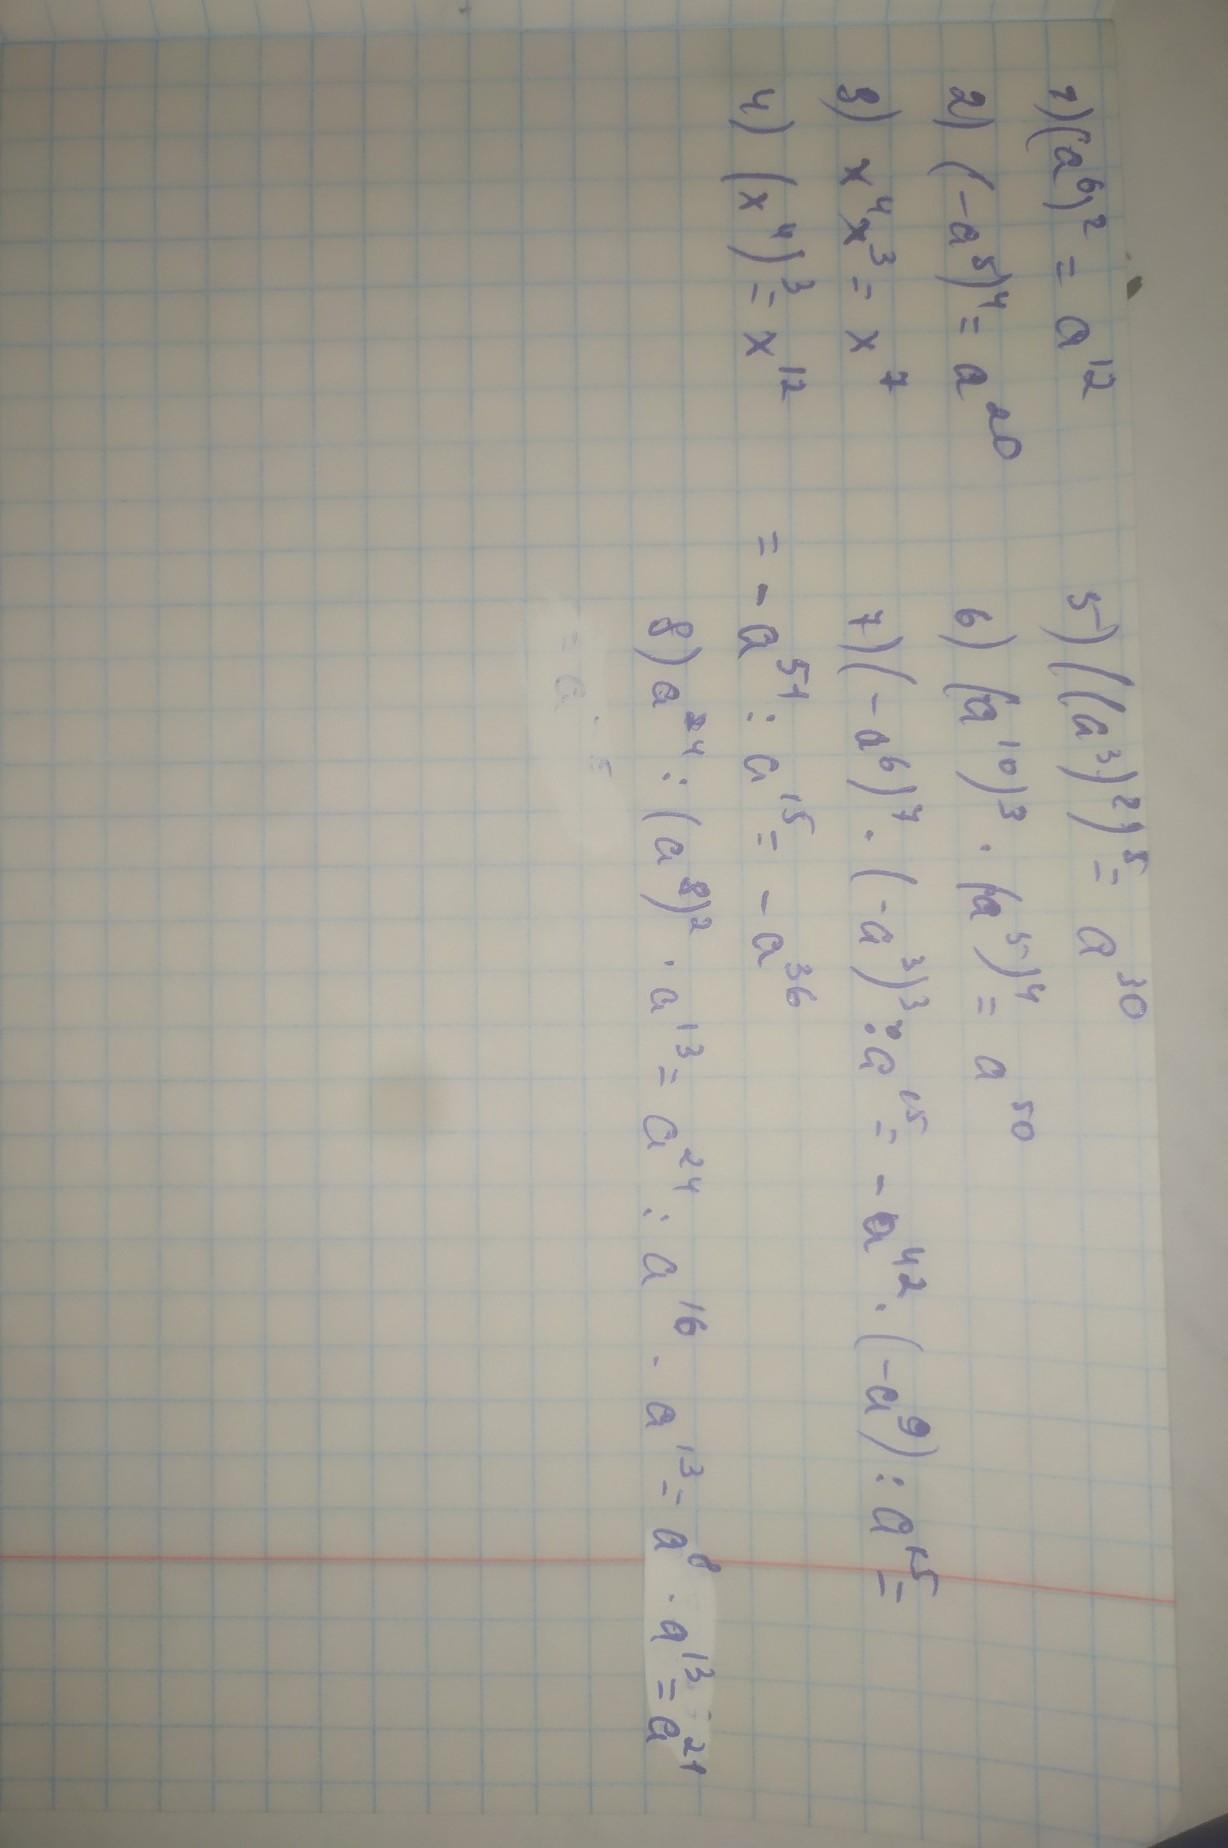 1) (a⁶)² = a¹²
2) (-a⁵)⁴ = a²⁰
3) x⁴x³ = x⁷
4) (x⁴)³ = x¹²
5) ((a³)²)⁵ = a³⁰
6) (a¹⁰)³ · (a⁵)⁴ = a⁵⁰
7) (-a⁶)⁷ · (-a³)³ : a¹⁵ = -a⁴² · (-a⁹) : a¹⁵ =
= -a⁵¹ : a¹⁵ = -a³⁶
8) a²⁴ : (a⁸)² · a¹³ = a²⁴ : a¹⁶ · a¹³ = a⁸ · a¹³ = a²¹